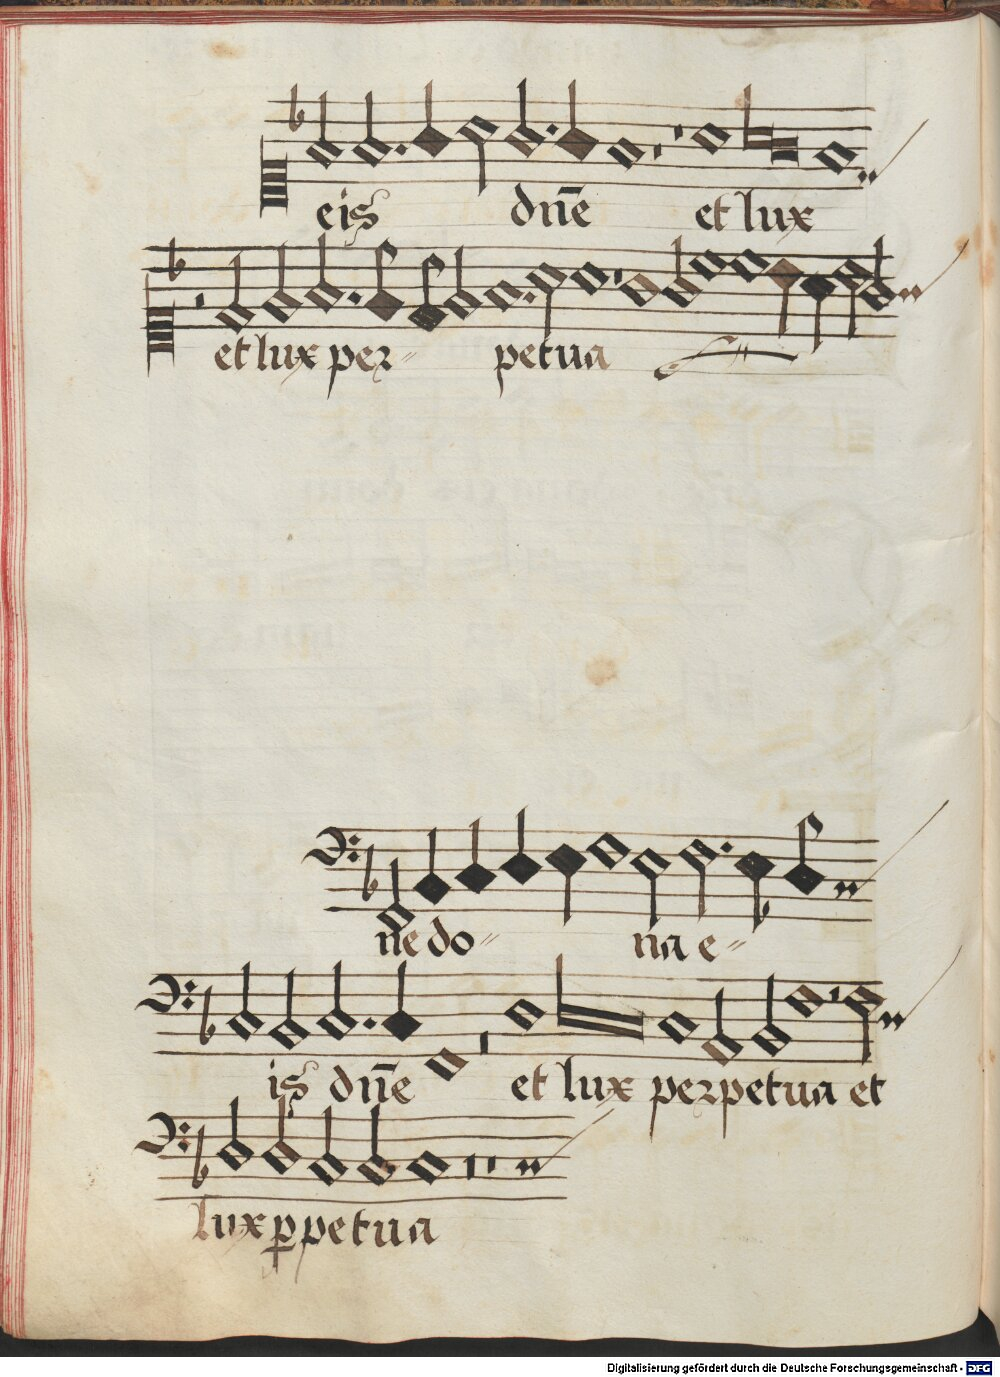 eis dn̄e et lux
et lux per- petua
ne do- na e-
is dn̄e et lux perpetua et
lux ꝑpetua
Digitalisierung gefördert durch die Deutsche Forschungsgemeinschaft - DFG